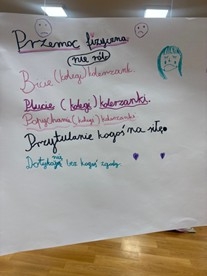 Przemoc fizyczna
nie rób
Bicie (kolegi) koleżanki.
Plucie (kolegi) koleżanki.
Popychanie (kolegi) koleżanki.
Przytulanie kogoś na siłę.
Dotykanie bez kogoś zgody.